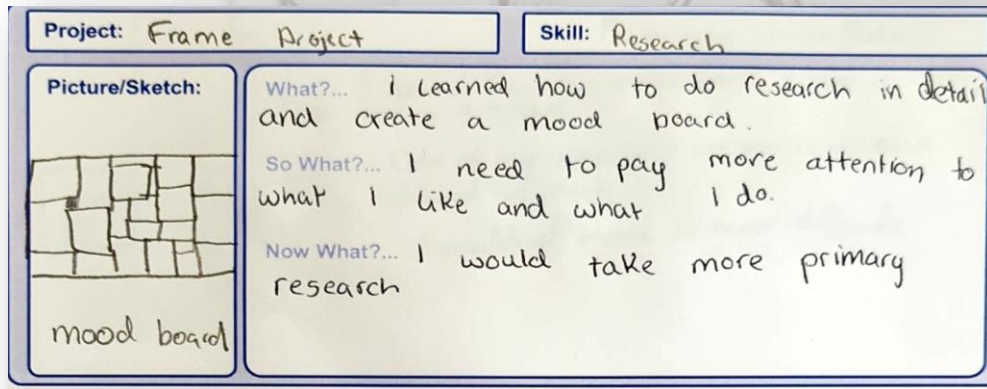 Project: Frame Project
Skill: Research
Picture/Sketch:
mood board
What?... I learned how to do research in detail
and create a mood board.
So What?... I need to pay more attention to
what I like and what I do.
Now What?... I would take more primary
research